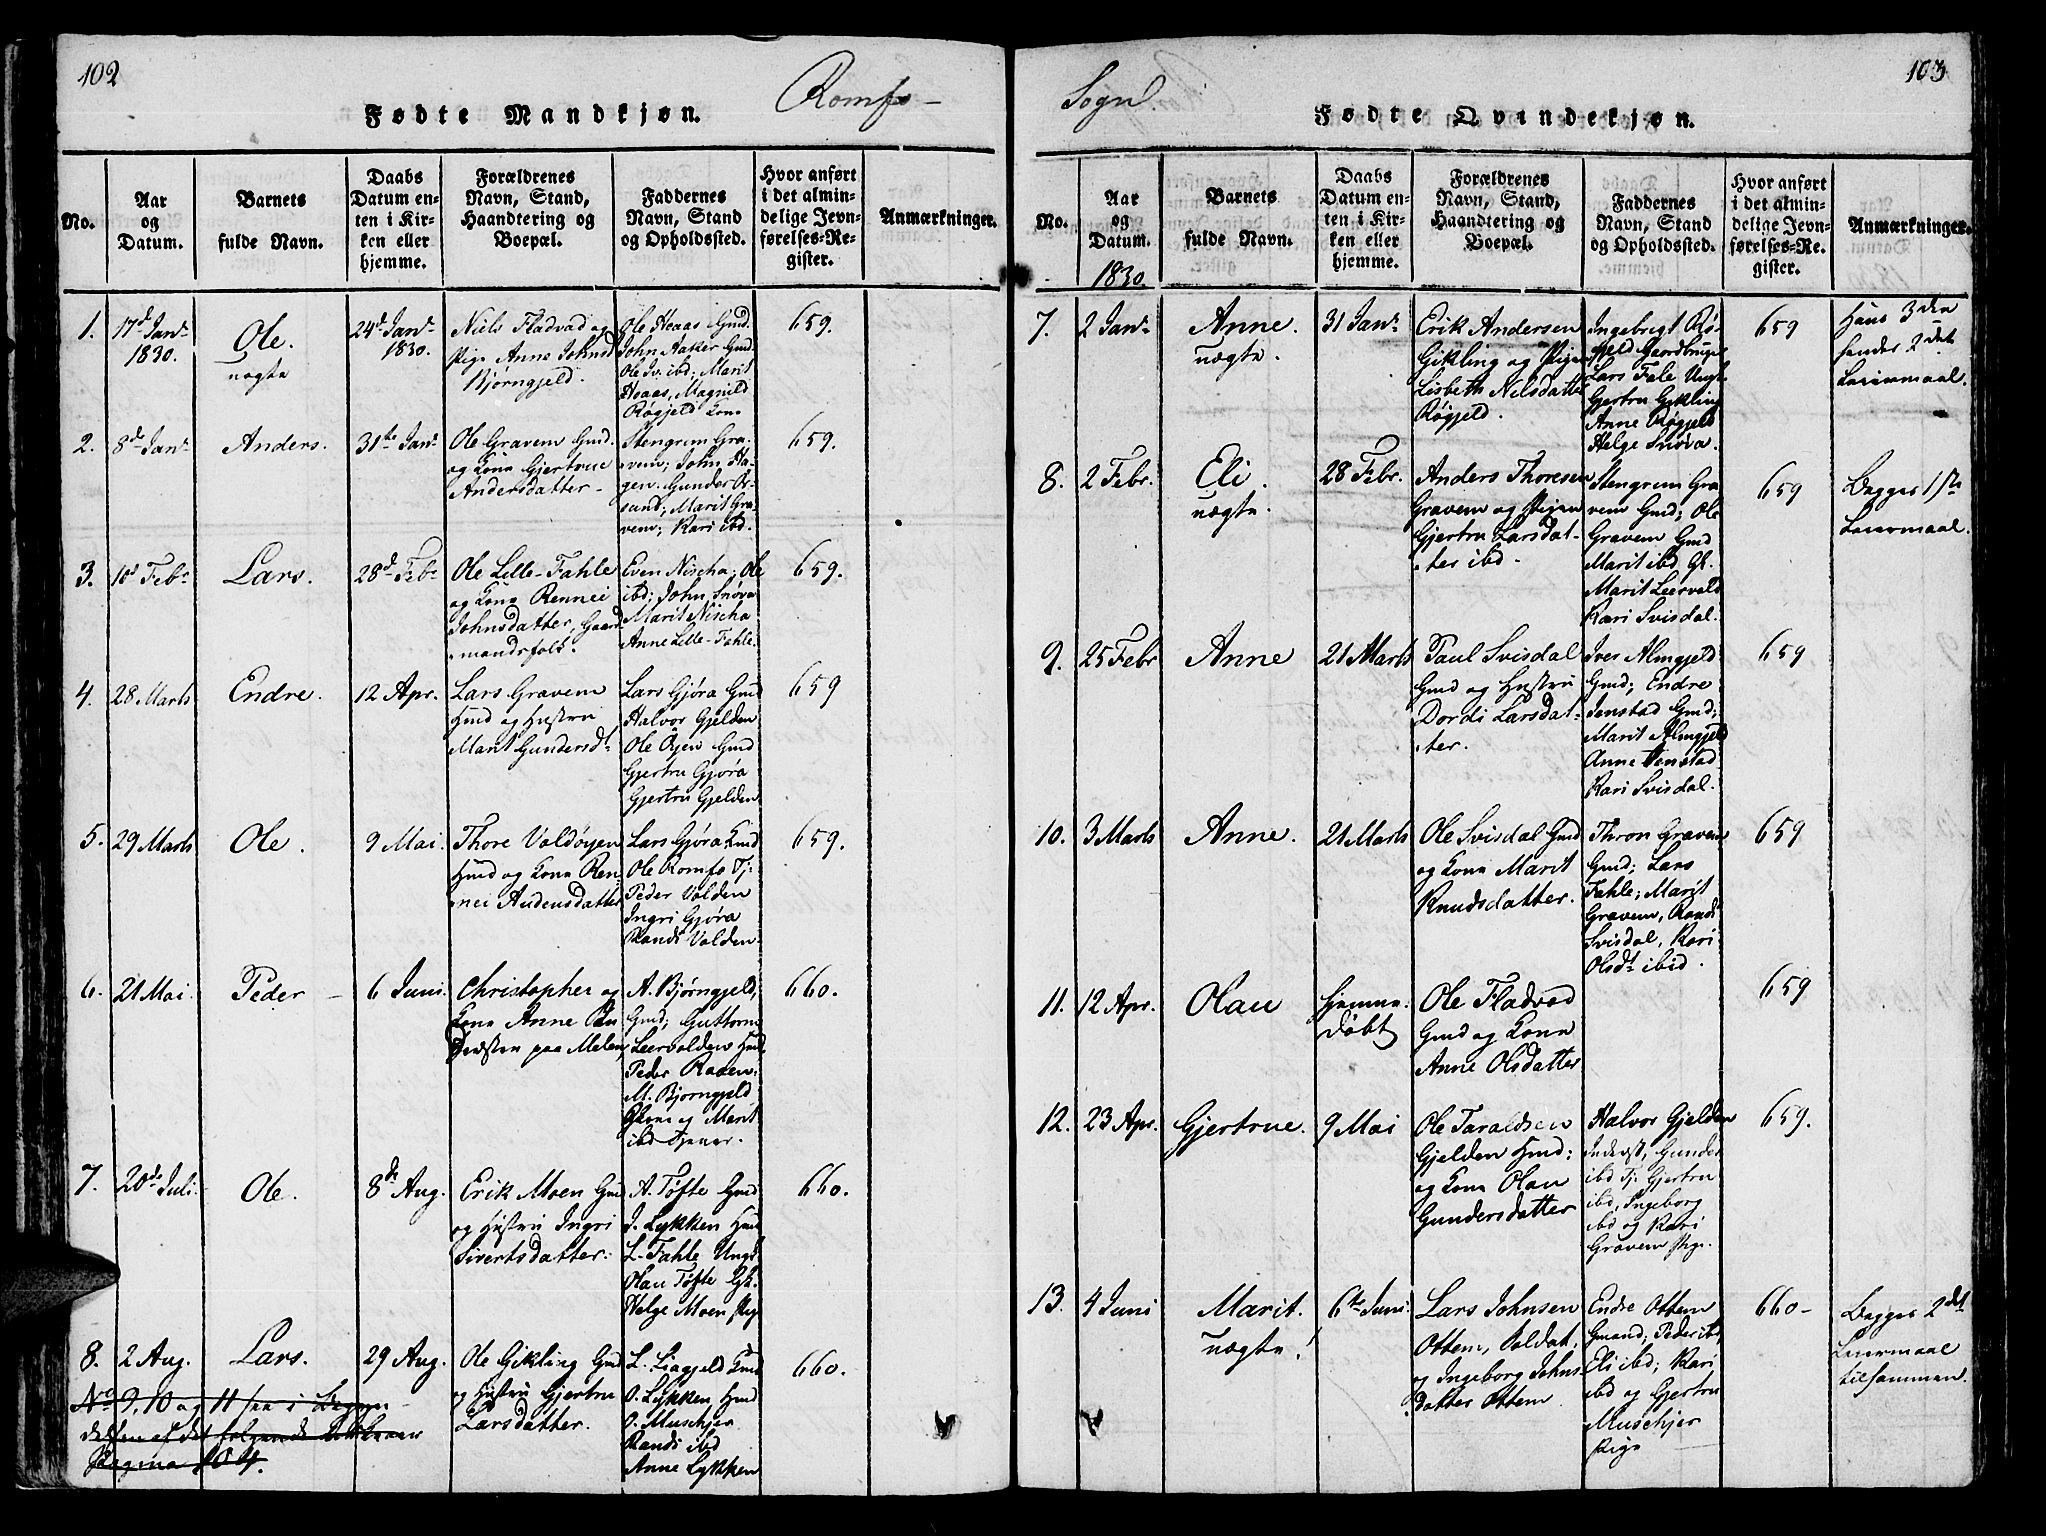 102
Romfo-
Fødte Mandkjøn.
No.
Aar
og
Datum.
Barnets
fulde Navn.
Daabs
Datum en-
ten i Kir-
ken eller
hjemme.
Forældrenes
Navn, Stand,
Haandtering og
Boepæl.
Faddernes
Navn, Stand
og Opholdssted.
Hvor anført
i det almin-
delige Jevn-
førelses-Re-
gister.
Anmærkninger.
1.
17d Janr
1830.
Ole.
uægte
24d Janr
1830.
Niels Fladvad og
Pige Anne Johnsd
Bjørngjeld.
Ole Hoaas Gmd.
John Aaker Gmd.
Ole Iv. ibd; Marit
Hoaas, Magnild
Røgjeld Kone
659.
2.
8de Janr
Anders.
31te Janr
Ole Gravem Gmd.
og Kone Gjertrue
Andersdatter-
Stengrim Gra-
vem; John Ha-
gen. Gunder Or-
sund; Marit Gra-
vem; Kari ibd.
659.
3.
10d Febr
Lars.
28d Febr
Ole Lille-Fahle
og Kone Rennei
Johnsdatter, Gaard
mandsfolk.
Even Nischa; Ole
ibd; John Snøva
Marit Nischa
Anne Lille-Fahle.
659.
4.
28 Marts
Endre.
12 Apr.
Lars Gravem
Hmd og Hustru
Marit Gundersdt
Lars Gjøra Gmd
Halvor Gjelden
Ole Øyen Gmd
Gjertru Gjøra
Gjertru Gjelden
659
5.
29 Marts
Ole.
9 Mai.
Thore Valdøyen
Hmd og Kone Ren-
nei Audensdatter
Lars Gjøra Gmd
Ole Romfo Tj:
Peder Volden
Ingri Gjøra
Randi Volden.
659.
6.
21 Mai.
Peder
6 Juni.
Christopher og
Kone Anne
paa Melen
A. Bjørngjeld,
Gmd; Guttorm
Leervolden Hmd
Peder Raaen.
M. Bjørngjeld
og Marit
ibd Tjener.
660.
7.
20de Juli.
Ole.
8de Aug.
Erik Moen Gmd
og Hustru Ingri
Sivertsdatter.
A. Tøfte Gmd
I. Lykken Hmd
L. Fahle Ungk.
Olau Tøfte Gk.
Helge Moen Pige
660.
8.
2 Aug.
Lars.
29 Aug.
Ole Gikling Gmd
og Hustru Gjertru
Larsdatter.
L. Liagjeld Gmd
O. Lykken Hmd
O. Muschjer
Randi ibd
Anne Lykken
660.
No 9, 10 og 11 saa i Begyn-
delsen af det følgende
Pagina 104.
103
Sogn.
Fødte Qvindekjøn.
No.
Aar
og
Datum.
1830.
Barnets
fulde Navn.
Daabs
Datum en-
ten i Kir-
ken eller
hjemme.
Forældrenes
Navn, Stand,
Haandtering og
Boepæl.
Faddernes
Navn, Stand
og Opholdssted.
Hvor anført
i det almin-
delige Jevn-
førelses-Re-
gister.
Anmærkninger.
7.
2 Janr
Anne.
uægte.
31 Janr
Erik Andersen
Gikling og Pigen
Lisbeth Nilsdatter
Røgjeld.
Ingebrigt Rø-
gjeld Gaardbruger
Lars Fale Ungk.
Gjertru Gikling
Anne Røgjeld
Helge Snøva.
659
Hans 3die
hendes 2det
Leiermaal.
8.
2 Febr.
Eli.
uægte.
28 Febr.
Anders Thoresen
Gravem og Pigen
Gjertru Larsdat-
ter ibd.
Stengrim Gra
vem Gmd; Ole
Gravem Gmd
Marit ibd Gk.
Marit Leervold
Kari Svisdal.
659
Begges 1ste
Leiermaal.
9.
25 Febr
Anne
21 Marts
Paul Svisdal
Gmd og Hustru
Dordi Larsdat-
ter.
Iver Almgjeld
Gmd; Endre
Jenstad Gmd;
Marit Almgjeld
Anne Jenstad
Kari Svisdal.
659
10.
3 Marts
Anne.
21 Marts
Ole Svisdal Gmd
og Kone Marit
Knudsdatter.
Thron Gravem
Gmd; Lars
Fahle; Marit
Gravem, Randi
Svisdal, Kari
Olsdt ibid.
659
11.
12 Apr.
Olau
hjemme-
døbt
Ole Fladvad
Gmd og Kone
Anne Olsdatter
659
12.
23 Apr.
Gjertrue.
9 Mai
Ole Taraldsen
Gjelden Hmd:
og Kone Olau
Gundersdatter
Halvor Gjelden
Inderst; Gunder
ibd Tj: Gjertru
ibd, Ingeborg
ibd og Kari
Gravem Pige.
659.
13.
4 Juni
Marit.
uægte!
6te Juni.
Lars Johnsen
Ottem, Soldat,
og Ingeborg Johns
datter Ottem
Endre Ottem
Gmand; Peder ibd
Eli ibd; Kari
ibd og Gjertru
Muschjer
Pige
660-
Begges 2det
Leiermaal
tilsammen.